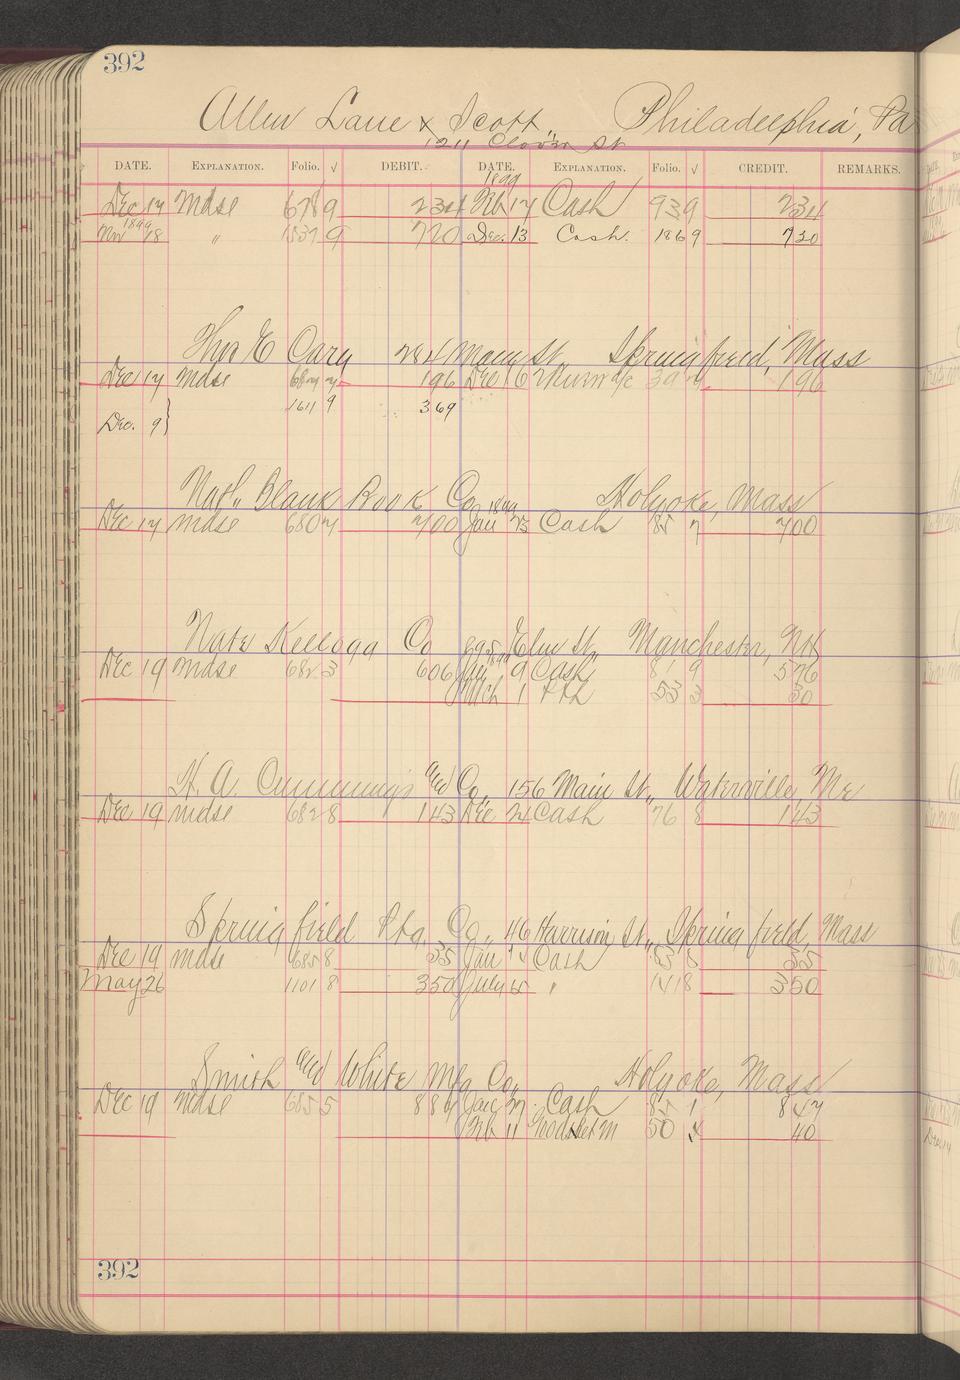 392
Allen Lane & Scott, Philadelphia, Pa
1211 Clover St
DATE. EXPLANATION. Folio. √ DEBIT. DATE. EXPLANATION. Folio. √ CREDIT. REMARKS.
1899
Dec 17 Mdse 678 9 234 Feb 17 Cash 93 9 234
1899
Nov 18 " 1537 9 720 Dec. 13 Cash. 186 9 720
E Cary 284 Main St. Springfield, Mass
Dec 17 Mdse 196 Dec 16 196
Dec. 9 } 1611 9 369
Natl. Blank Book Co Holyoke, Mass
1899
Dec 17 Mdse 680 7 700 Jan 23 Cash 85 7 700
Nate Kellogg Co Elm St. Manchester, NH
1899
Dec 19 Mdse 682 3 606 Jan 9 Cash 81 9 576
Mch 1 53 3 30
H. A. Cummings and Co, 156 Main St., Waterville, Me
Dec 19 Mdse 682 8 143 Dec 24 Cash 76 8 143
Springfield Ptg. Co., 46 Harrison St., Springfield, Mass
Dec 19 Mdse 685 8 35 Jan Cash 35
May 26 1101 8 350 July " 141 8 350
Smith and White Mfg Co., Holyoke, Mass
Dec 19 Mdse 685 5 887 Jan 27 Cash 847
Feb 11 50 40
392